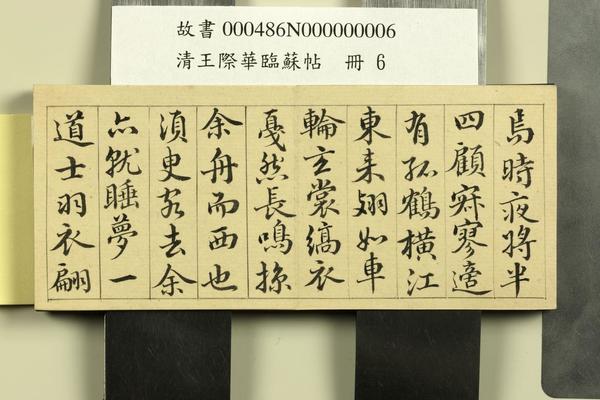 故書 000486N000000006
清王際華臨蘇帖 冊 6
焉時夜將半
四顧寂寥適
有孤鶴橫江
東来翅如車
輪玄裳縞衣
戛然長鳴掠
余舟而西也
湏臾客去余
亦就睡夢一
道士羽衣翩